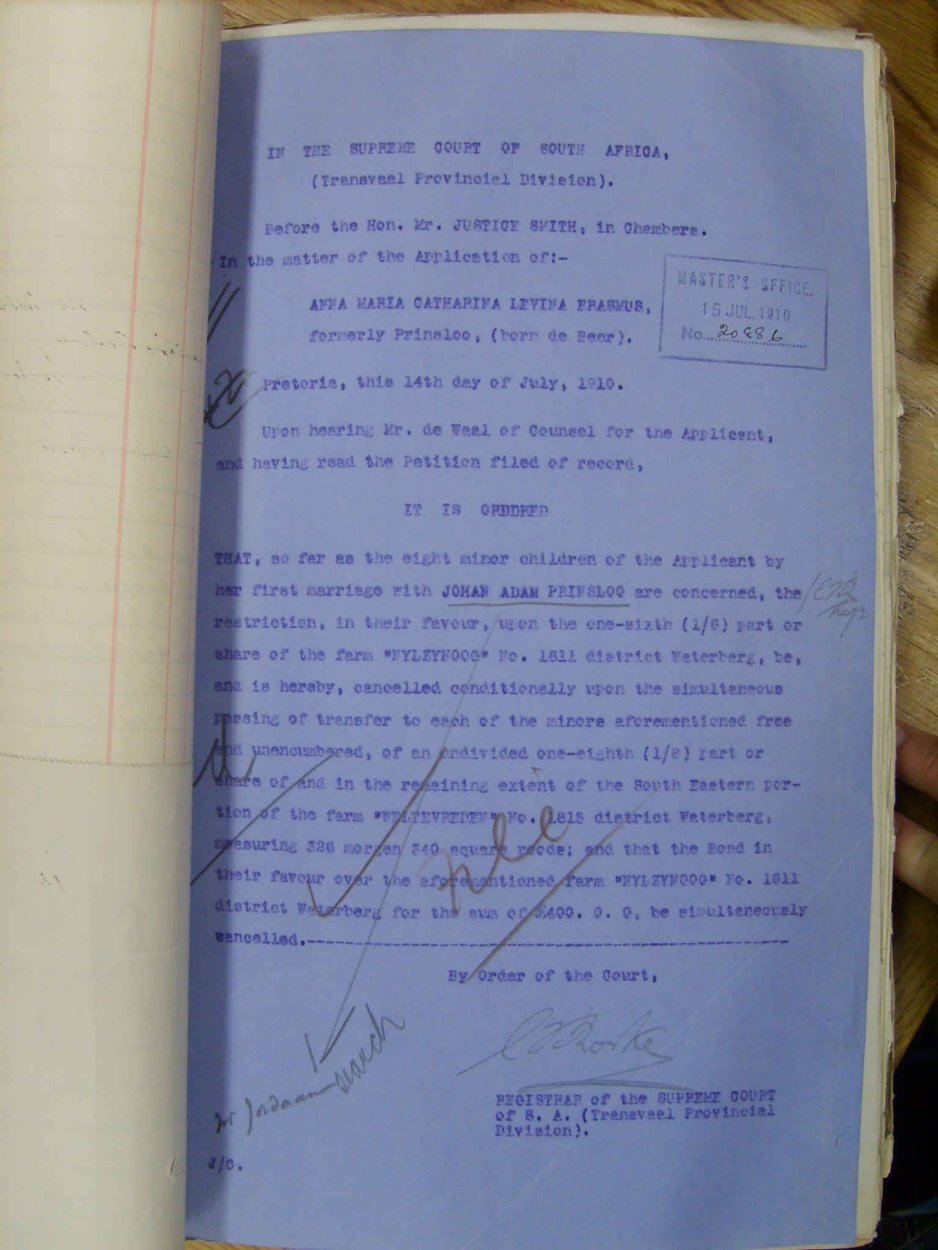 IN THE SUPREME COURT OF SOUTH AFRICA,
(Transvaal Provincial Division).
Before the Hon. Mr. JUSTICE SMITH, in Chambers.
In the matter of the Application of:-
MASTER'S OFFICE.
15 JUL. 1910
No. 20886
ANNA MARIA CATHARINA LEVINA ERASMUS,
formerly Prinsloo, (born de Beer).
Pretoria, this 14th day of July, 1910.
Upon hearing Mr. de Waal of Counsel for the Applicant,
and having read the Petition filed of record,
IT IS ORDERED
THAT, so far as the eight minor children of the Applicant by
her first marriage with JOHAN ADAM PRINSLOO are concerned, the
restriction, in their favour, upon the one-sixth (1/6) part or
share of the farm "NYLZYNOOG" No. 1611 district Waterberg, be,
and is hereby, cancelled conditionally upon the simultaneous
passing of transfer to each of the minors aforementioned free
and unencumbered, of an undivided one-eighth (1/8) part or
share of and in the remaining extent of the South Eastern por-
tion of the farm "WELTEVREDEN" No. 1818 district Waterberg,
measuring 326 morgen 340 square roods; and that the Bond in
their favour over the aforementioned farm "NYLZYNOOG" No. 1611
district Waterberg for the sum of £400. 0. 0, be simultaneously
cancelled.--------------------
By Order of the Court,
Mr Jordaan
search
REGISTRAR of the SUPREME COURT
of S. A. (Transvaal Provincial
Division).
J/C.